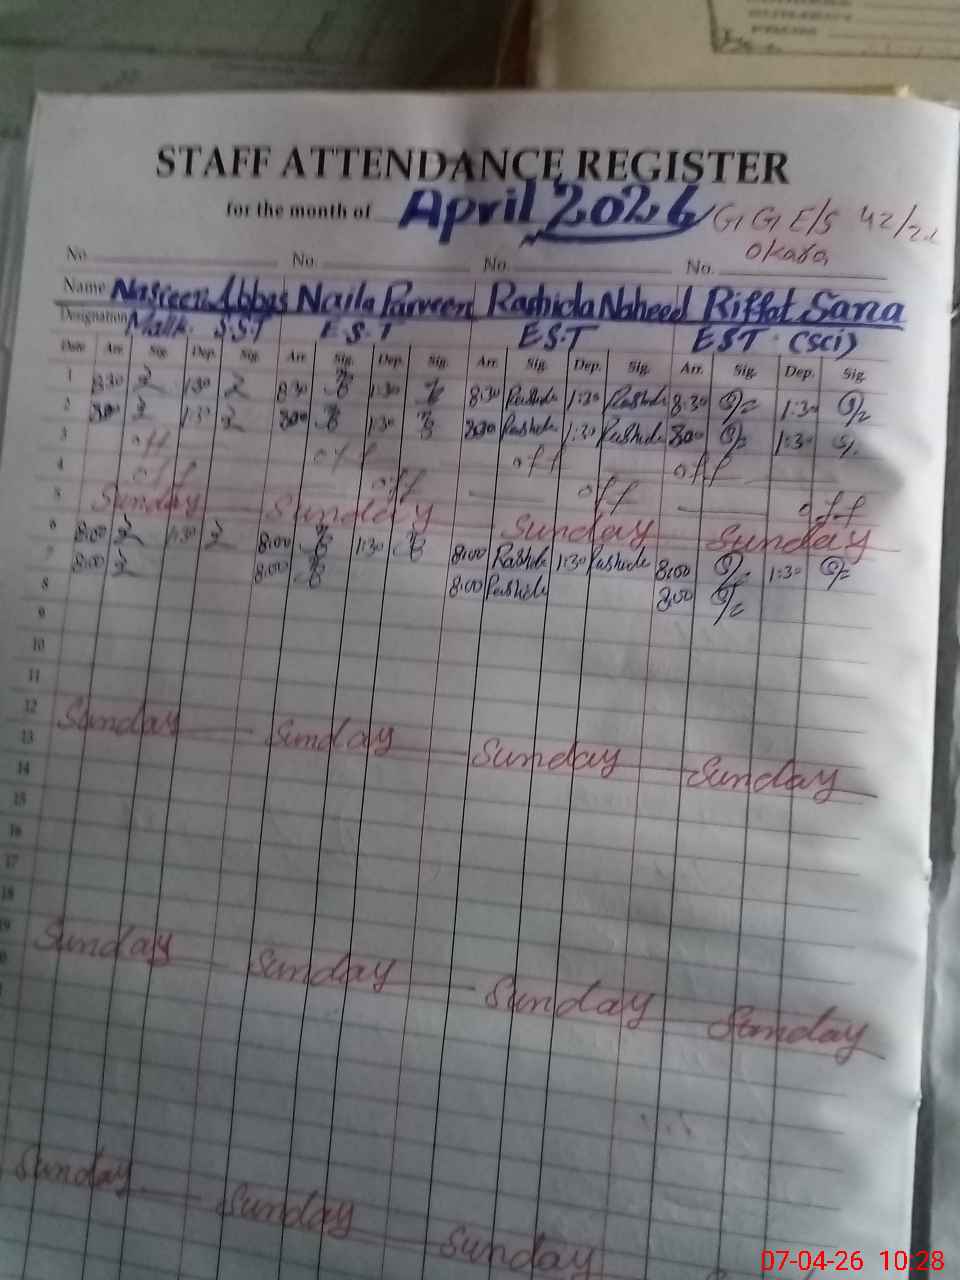 STAFF ATTENDANCE REGISTER
for the month of April 2026 G G E/S 42/2L
Okara
No. No. No. No.
Name Nasreen Abbas Naila Parveen Rashida Naheed Riffat Sana
Designation Malik. S.S.T E.S.T E.S.T EST (Sci)
Date Arr. Sig. Dep. Sig. Arr. Sig. Dep. Sig. Arr. Sig. Dep. Sig. Arr. Sig. Dep. Sig.
1 8:30 1:30 8:30 1:30 8:30 Rashida 1:30 Rashida 8:30 1:30
2 800 1:30 800 1:30 800 Rashida 1:30 Rashida 800 1:30
3 off off off off
4 off off off off
5 Sunday Sunday Sunday Sunday
6 8:00 1:30 8:00 1:30 8:00 Rashida 1:30 Rashida 8:00 1:30
7 8:00 8:00 8:00 Rashida 8:00
8
9
10
11
12 Sunday Sunday Sunday Sunday
13
14
15
16
17
18
19 Sunday Sunday Sunday Sunday
Sunday Sunday Sunday
07-04-26 10:28